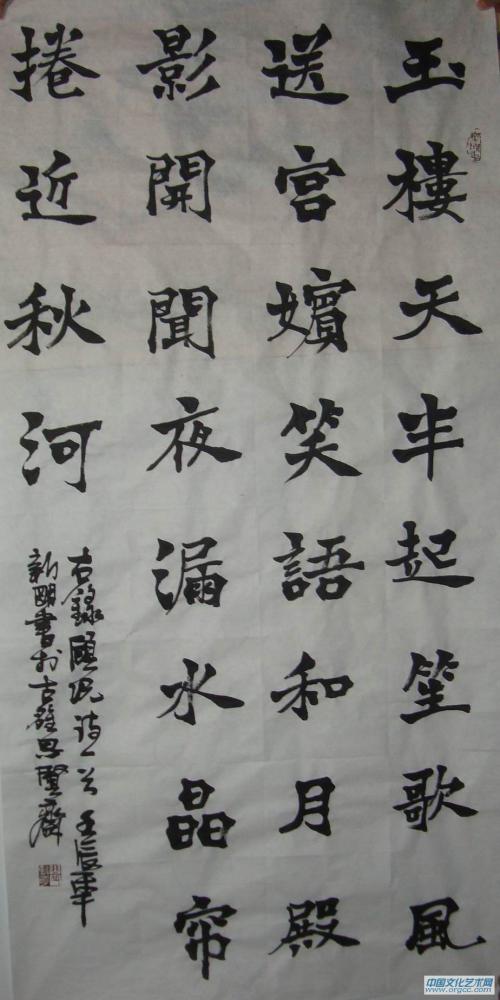 玉樓天半起笙歌風
送宮嬪笑語和月殿
影開聞夜漏水晶帘
捲近秋河
右錄顧況詩一首 壬辰年
新明書於古雒思賢齋
中国文化艺术网
www.orgcc.com